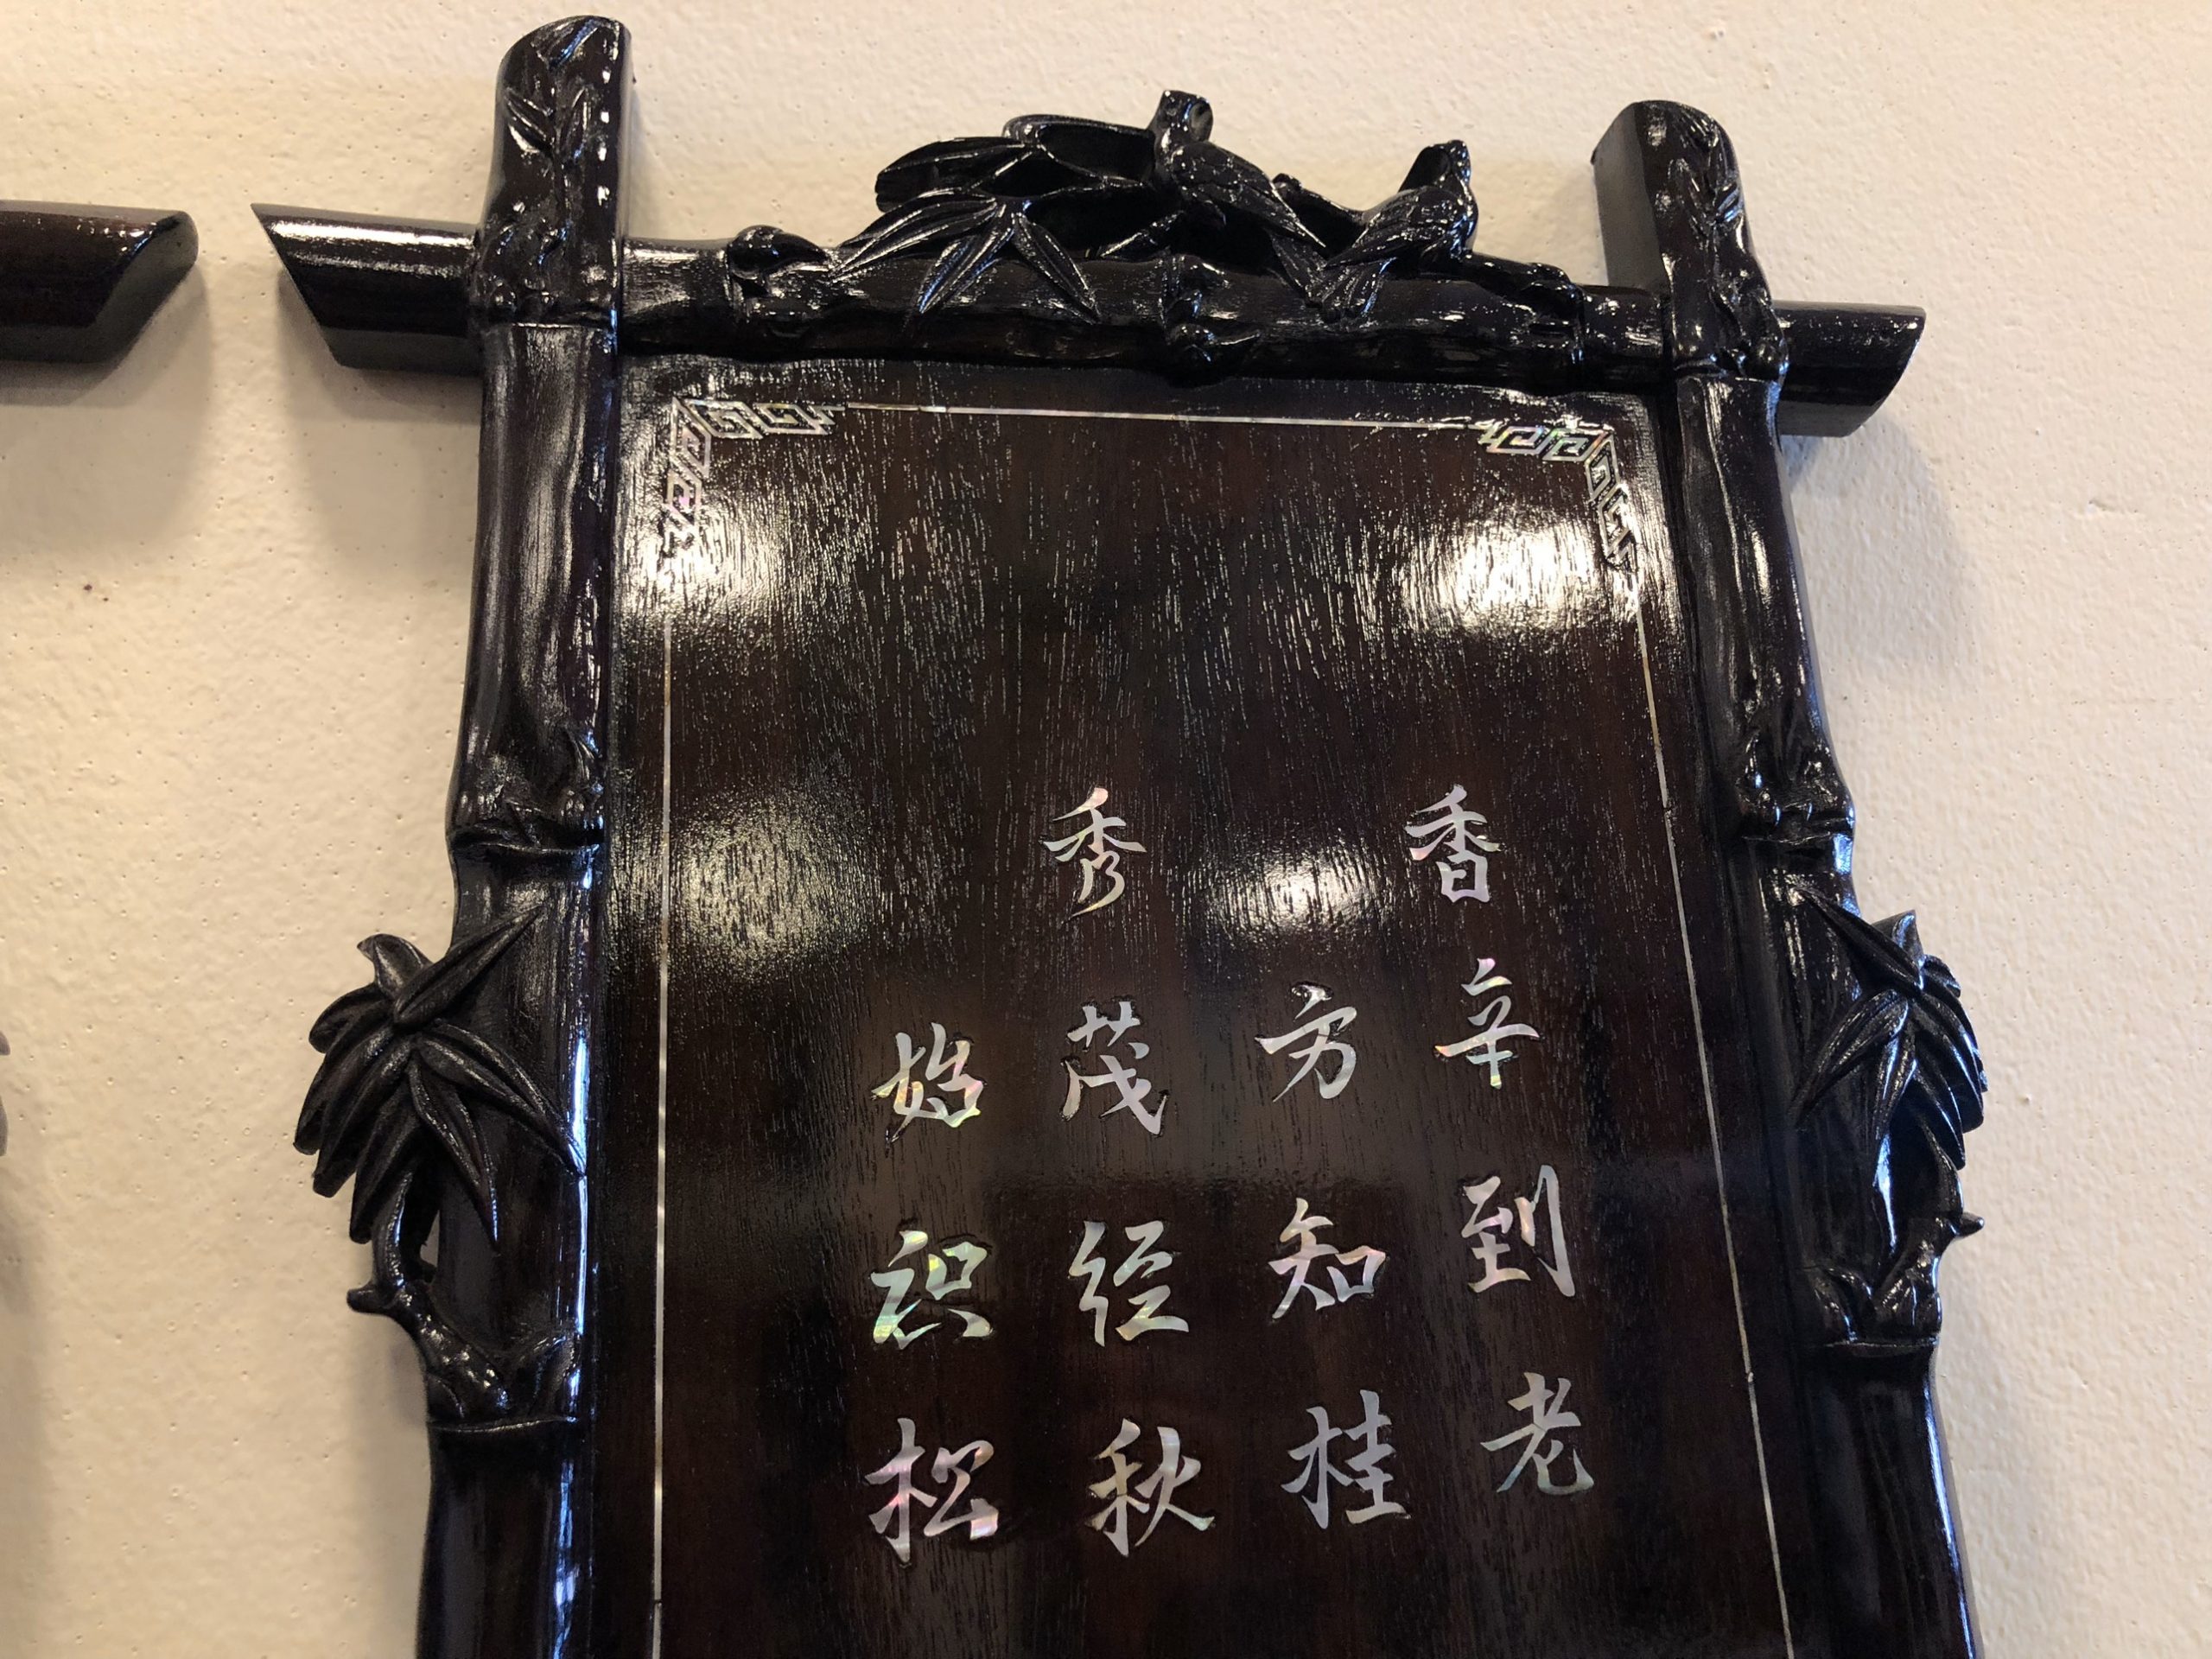 香辛到老
方知桂
秀茂经秋
始识松